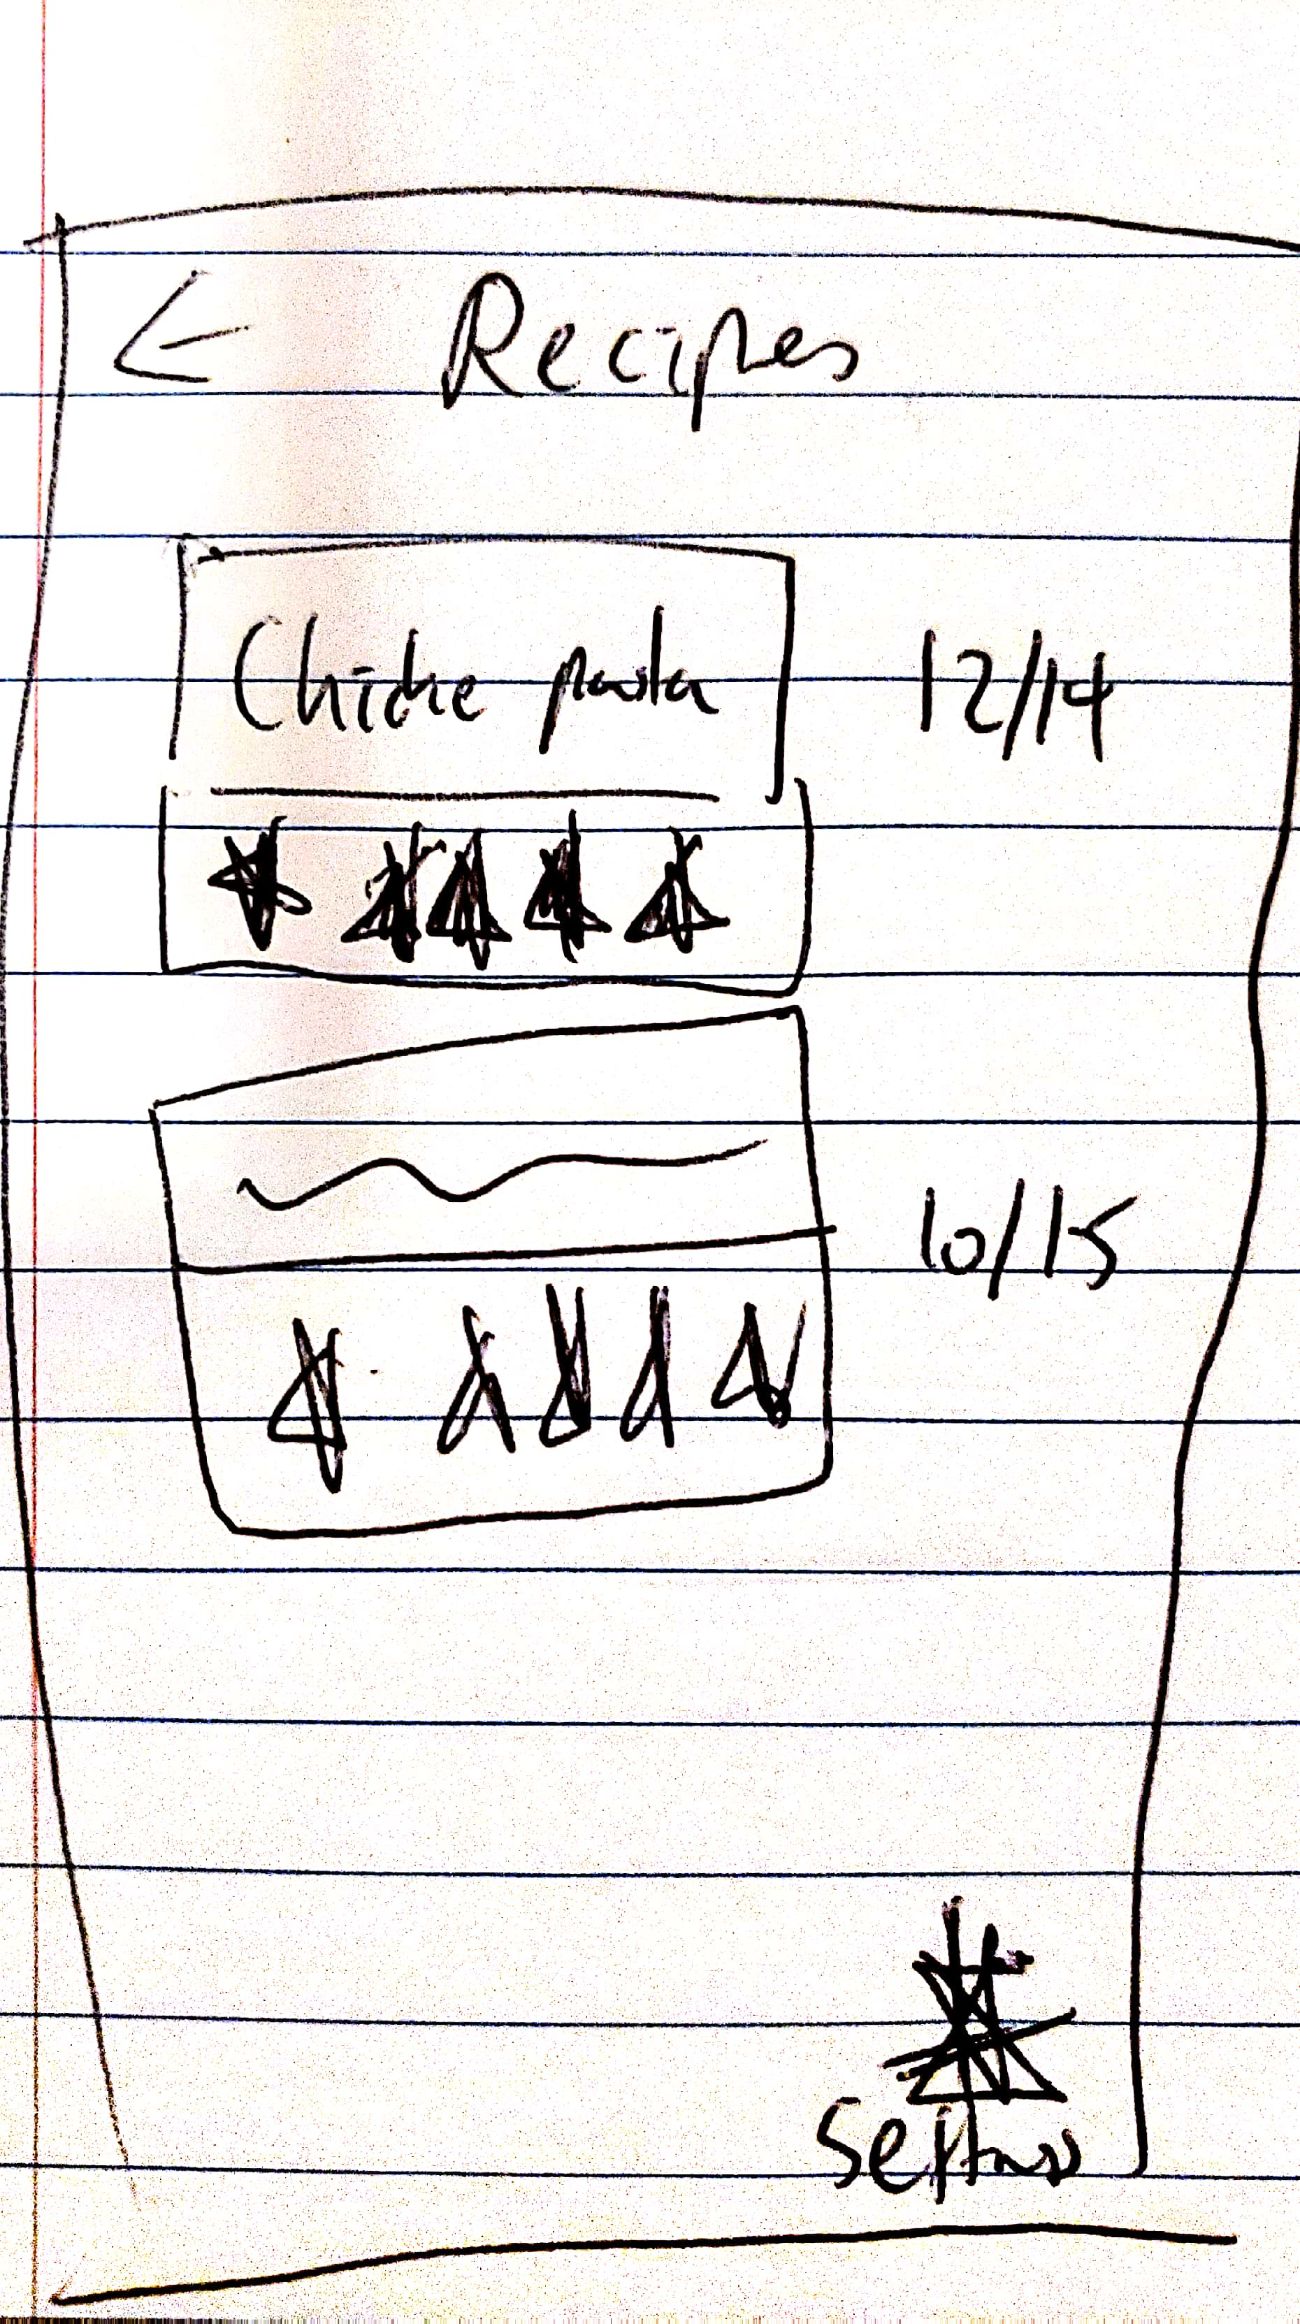 ← Recipes
Chicke pasta 12/14
10/15
Settings